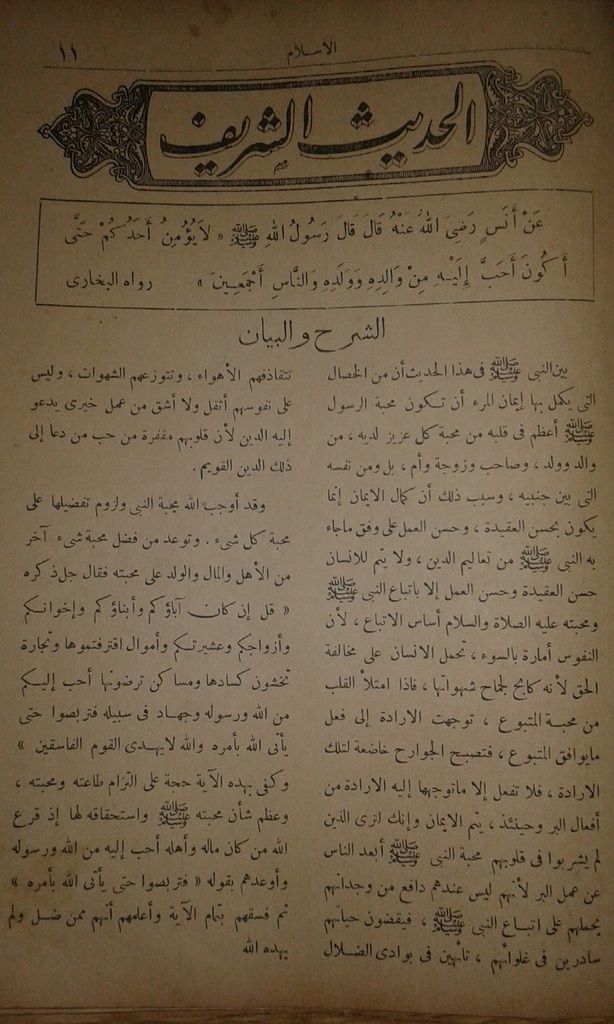 الاسلام
١١
الحديث الشريف
عَنْ أَنَسٍ رَضِىَ اللهُ عَنْهُ قَالَ قَالَ رَسُولُ اللهِ ﷺ « لَا يُؤْمِنُ أَحَدُكُمْ حَتَّى
أَكُونَ أَحَبَّ إِلَيْهِ مِنْ وَالِدِهِ وَوَلَدِهِ وَالنَّاسِ أَجْمَعِينَ » رواه البخارى
الشرح والبيان
بين النبى ﷺ فى هذا الحديث أن من الخصال
التى يكمل بها إيمان المرء أن تكون محبة الرسول
ﷺ أعظم فى قلبه من محبة كل عزيز لديه ، من
والد وولد ، وصاحب وزوجة وأم ، بل ومن نفسه
التى بين جنبيه ، وسبب ذلك أن كمال الايمان إنما
يكون بحسن العقيدة ، وحسن العمل على وفق ماجاء
به النبى ﷺ من تعاليم الدين ، ولا يتم للانسان
حسن العقيدة وحسن العمل إلا باتباع النبى ﷺ
ومحبته عليه الصلاة والسلام أساس الاتباع ، لأن
النفوس أمارة بالسوء ، تحمل الانسان على مخالفة
الحق لأنه كابح لجماح شهواتها ، فاذا امتلأ القلب
من محبة المتبوع ، توجهت الارادة إلى فعل
مايوافق المتبوع ، فتصبح الجوارح خاضعة لتلك
الارادة ، فلا تفعل إلا ماتوجهها إليه الارادة من
أفعال البر وحينئذ ، يتم الايمان وإنك لترى الذين
لم يشربوا فى قلوبهم محبة النبى ﷺ أبعد الناس
عن عمل البر لأنهم ليس عندهم دافع من وجداتهم
يحملهم على اتباع النبى ﷺ ، فيقضون حياتهم
سادرين فى غلوائهم ، تائهين فى بوادى الضلال
تتقاذفهم الأهواء ، وتتوزعهم الشهوات ، وليس
على نفوسهم أثقل ولا أشق من عمل خيرى يدعو
إليه الدين لأن قلوبهم مقفرة من حب من دعا إلى
ذلك الدين القويم .
وقد أوجب الله محبة النبى ولزوم تفضيلها على
محبة كل شىء . وتوعد من فضل محبة شىء آخر
من الأهل والمال والولد على محبته فقال جل ذكره
« قل إن كان آباؤكم وأبناؤكم وإخوانكم
وأزواجكم وعشيرتكم وأموال اقترفتموها وتجارة
تخشون كسادها ومساكن ترضونها أحب إليكم
من الله ورسوله وجهاد فى سبيله فتربصوا حتى
يأتى الله بأمره والله لايهدى القوم الفاسقين »
وكفى بهذه الآية حجة على التزام طاعته ومحبته ،
وعظم شأن محبته ﷺ واستحقاقه لها إذ قرع
الله من كان ماله وأهله أحب إليه من الله ورسوله
وأوعدهم بقوله « فتربصوا حتى يأتى الله بأمره »
ثم فسقهم بتمام الآية وأعلمهم أنهم ممن ضل ولم
يهده الله